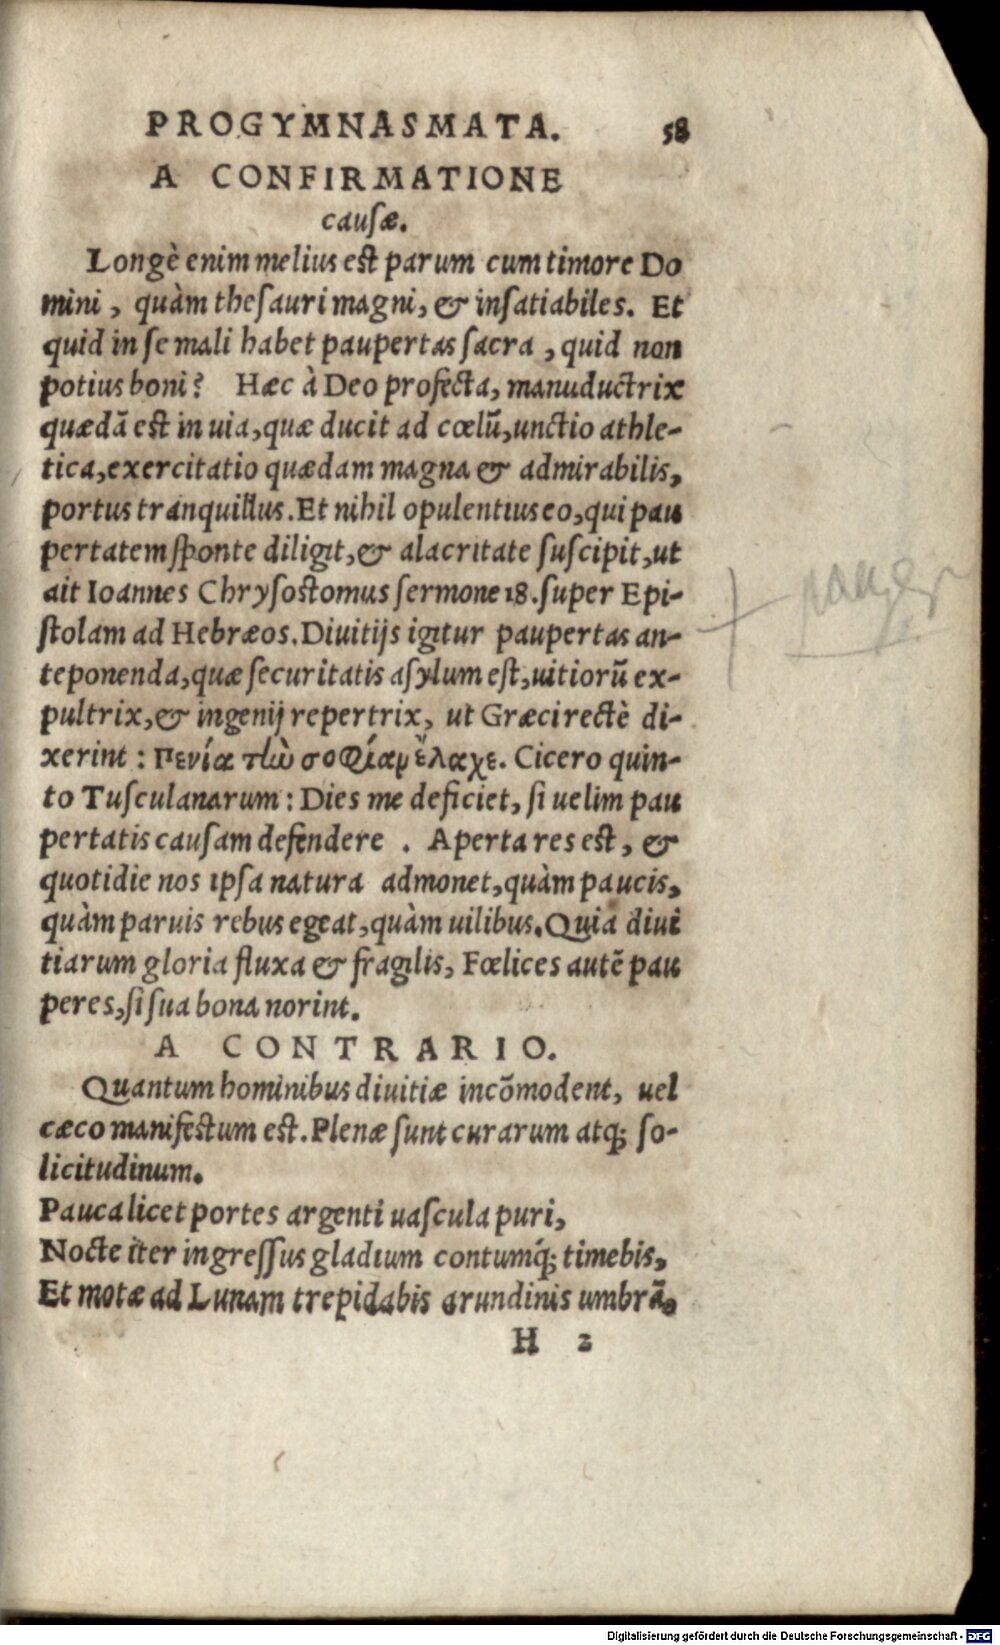 PROGYMNASMATA. 58
A CONFIRMATIONE
causæ.
Longè enim melius est parum cum timore Do
mini, quàm thesauri magni, & insatiabiles. Et
quid in se mali habet paupertas sacra, quid non
potius boni? Hæc à Deo profecta, manuductrix
quædã est in uia, quæ ducit ad cœlũ, unctio athle-
tica, exercitatio quædam magna & admirabilis,
portus tranquillus. Et nihil opulentius eo, qui pau
pertatem sponte diligit, & alacritate suscipit, ut
ait Ioannes Chrysostomus sermone 18. super Epi-
stolam ad Hebræos. Diuitijs igitur paupertas an-
teponenda, quæ securitatis asylum est, uitiorũ ex-
pultrix, & ingenij repertrix, ut Græci rectè di-
xerint: Πενία τὼ σοφίαμ ἔλαχε. Cicero quin-
to Tusculanarum: Dies me deficiet, si uelim pau
pertatis causam defendere. Aperta res est, &
quotidie nos ipsa natura admonet, quàm paucis,
quàm paruis rebus egeat, quàm uilibus. Quia diui
tiarum gloria fluxa & fragilis, Fœlices autẽ pau
peres, si sua bona norint.
A CONTRARIO.
Quantum hominibus diuitiæ incõmodent, uel
cæco manifestum est. Plenæ sunt curarum atq; so-
licitudinum.
Pauca licet portes argenti uascula puri,
Nocte iter ingressus gladium contumq́; timebis,
Et motæ ad Lunam trepidabis arundinis umbrã.
H 2
Digitalisierung gefördert durch die Deutsche Forschungsgemeinschaft - DFG